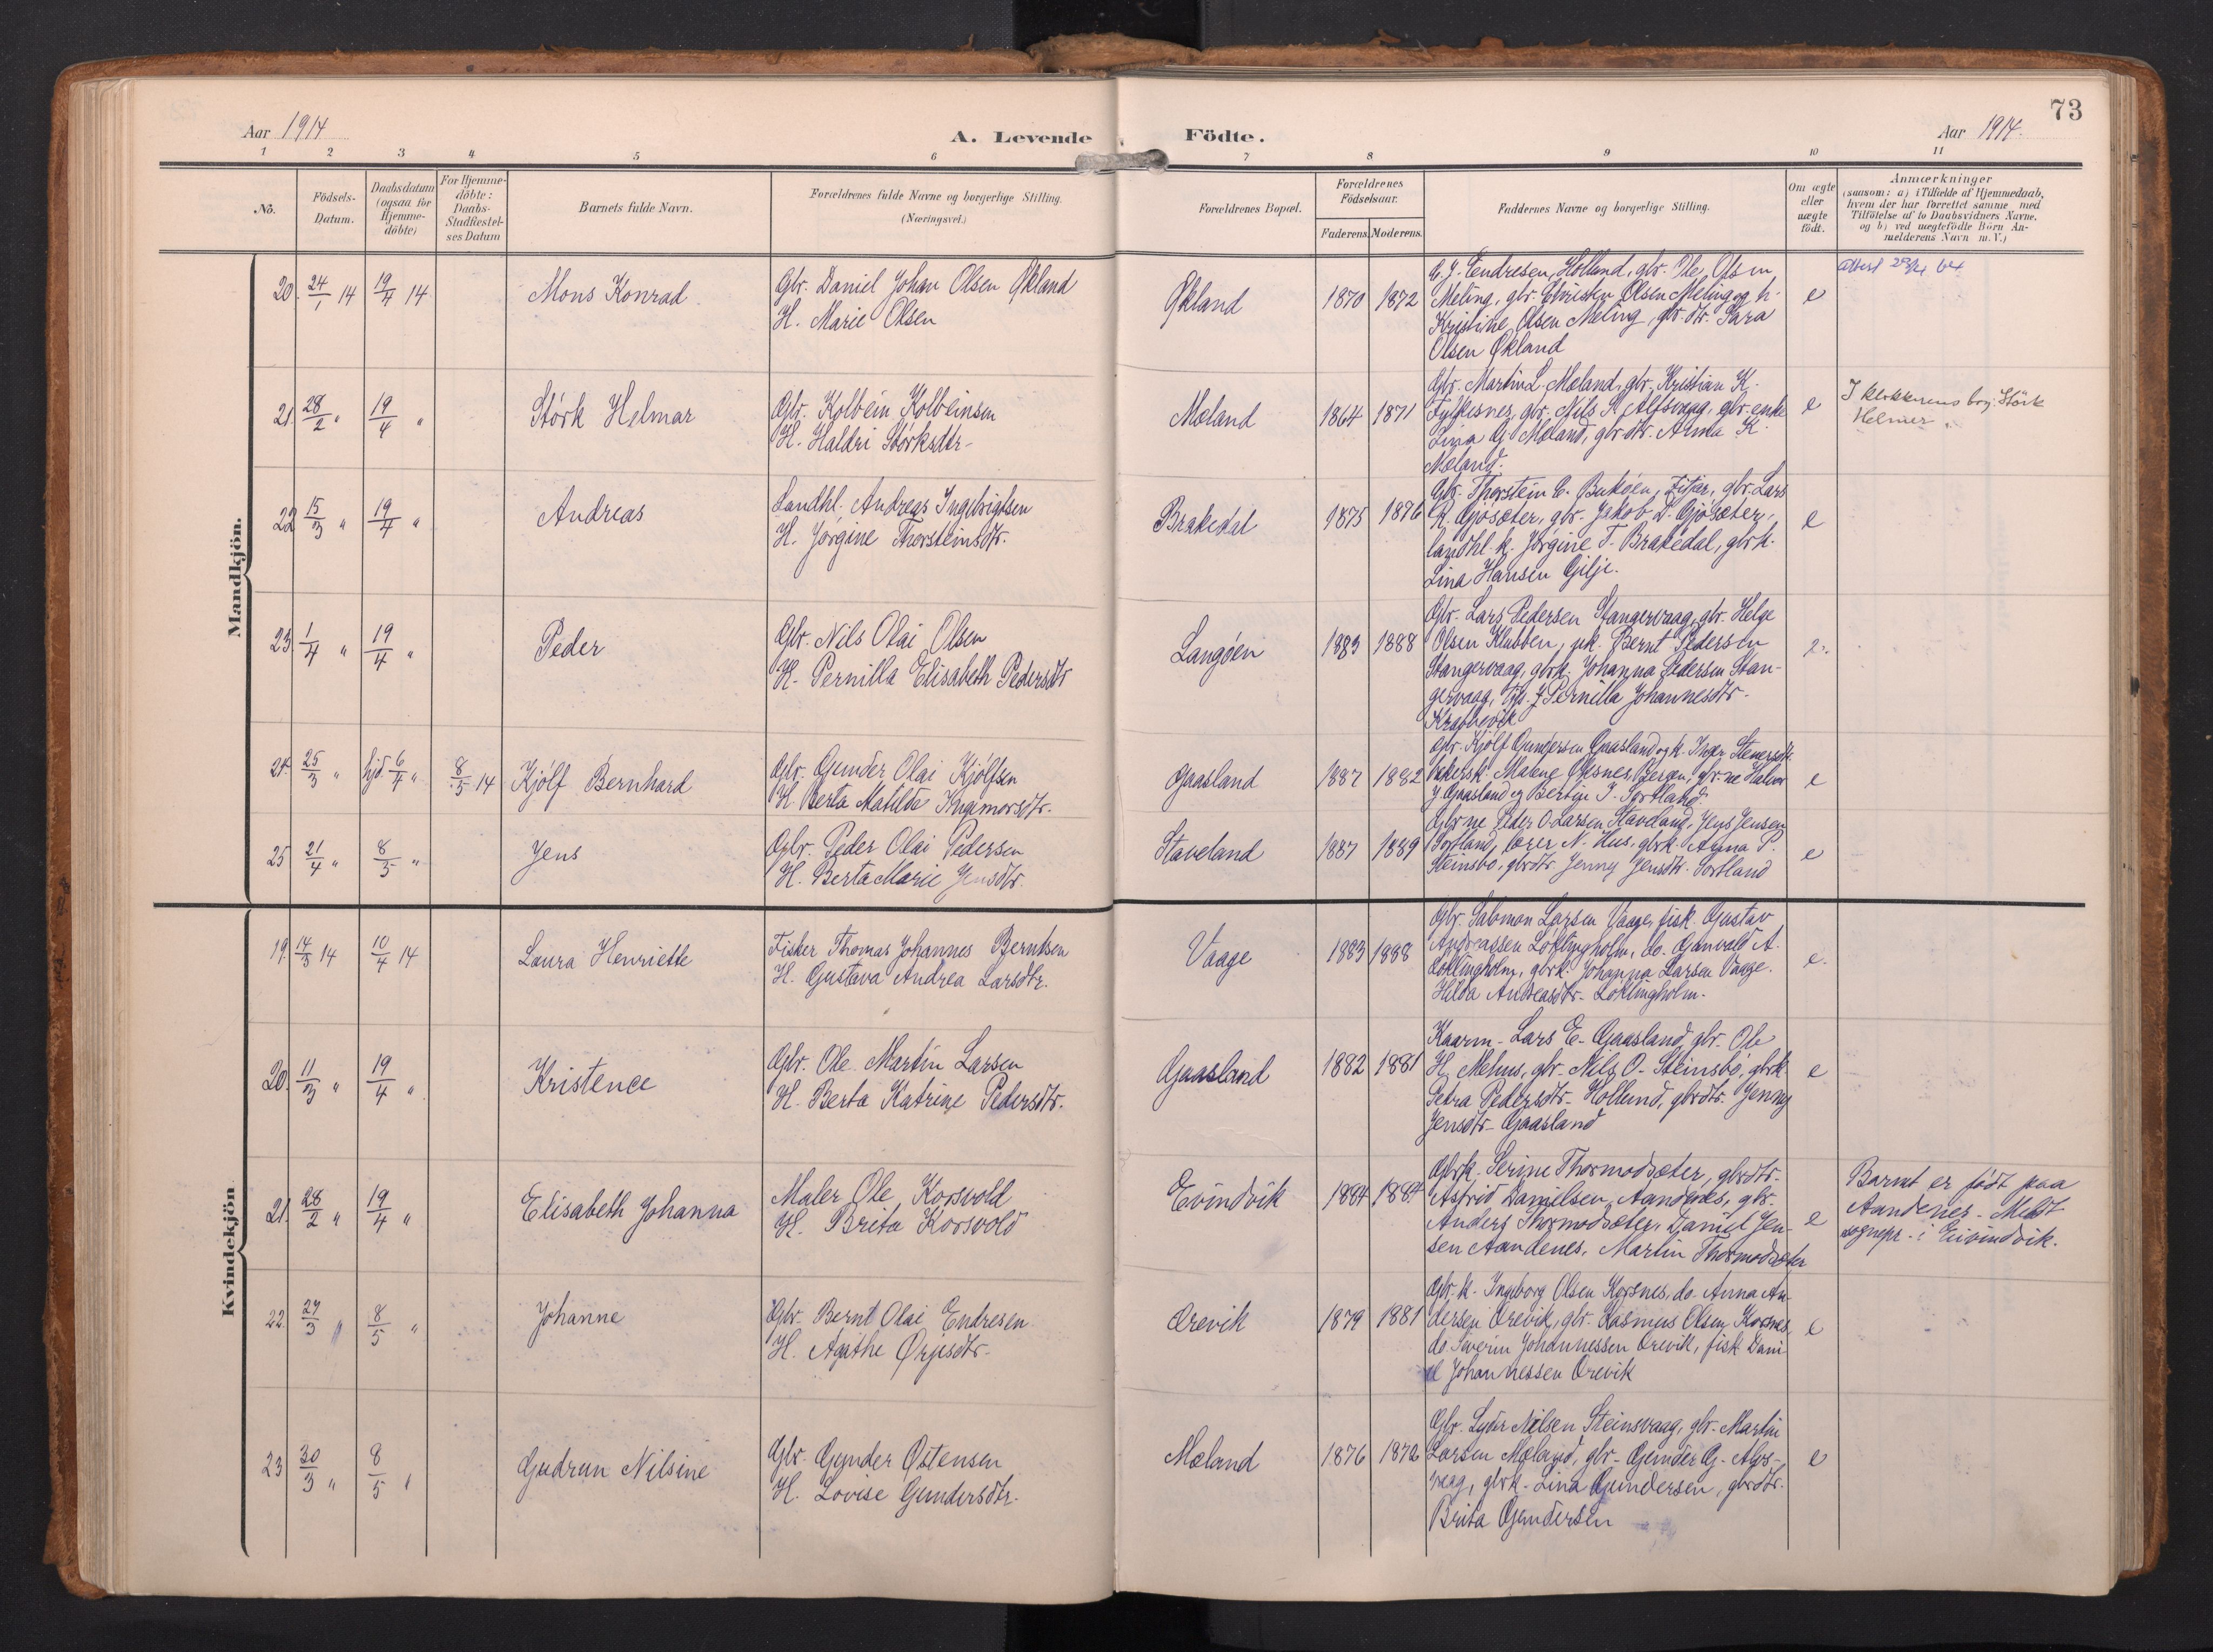 73
Aar 1914
A. Levende Födte.
Aar 1914.
1 2 3 4 5 6 7 8 9 10 11
No.
Födsels-Datum.
Daabsdatum (ogsaa for Hjemme-döbte)
For Hjemme-döbte: Daabs-Stadfæstel-ses Datum
Barnets fulde Navn.
Forældrenes fulde Navne og borgerlige Stilling.
(Næringsvei.)
Forældrenes Bopæl.
Forældrenes Födselsaar.
Faderens. Moderens.
Faddernes Navne og borgerlige Stilling.
Om ægte eller uægte födt.
Anmærkninger
(saasom: a) i Tilfælde af Hjemmedaab, hvem der har forrettet samme med Tilföielse af to Daabsvidners Navne, og b) ved uægtefödte Börn Anmelderens Navn m. V.)
Mandkjön.
20. 24/1 14 19/4 14 Mons Konrad
Gbr. Daniel Johan Olsen Økland
H. Marie Olsen
Økland 1870 1872
Endresen, Holland, gbr. Ole Olsen
Meling, gbr. Olsen Meling og h.
Kristine Olsen Meling, gbr. dtr. Sara
Olsen Økland
e
Attest
21. 28/2 " 19/4 " Störk Helmar
Gbr. Kolbein Kolbeinsen
H. Haldri Störksdtr.
Mæland 1864 1871
Gbr. Martin L. Mæland, gbr. Kristian K.
Fylkesnes, gbr. Nils Alfsvaag, gbr. enke
Lina G. Mæland, gbr. dtr. Anna K.
Mæland.
e
I klokkerens bog: Störk
Helmer.
22 15/3 " 19/4 " Andreas
Landhl. Andreas Ingebrigtsen
H. Jörgine Thorsteinsdtr.
Brakedal 1875 1876
Gbr. Thorstein E. Buköen, Fitjar, gbr. Lars
R. Gjösæter, gbr. Jakob L. Gjösæter,
landhl. k. Jörgine T. Brakedal, gbrk.
Lina Hansen Gilje.
e
23 1/4 " 19/4 " Peder
Gbr. Nils Olai Olsen
H. Pernilla Elisabeth Pedersdtr
Langöen 1883 1888
Gbr. Lars Pedersen Stangervaag, gbr. Helge
Olsen Klubben, Bernt Pedersen
Stangervaag, gbrk. Johanna Pedersen Stan-
gervaag, Pernilla Johannesdtr.
e.
24. 25/3 " hjd. 6/4 " 8/5 14 Kjölf Bernhard
Gbr. Gunder Olai Kjölfsen
H. Berta Matilde Ingemorsdtr.
Gaasland 1887 1882
Gbr. Kjölf Gundersen Gaasland og k. Inger
Malene Øksnes, Bergen, gbr. ne Halvor
J. Gaasland og Bertin J. Sortland
e
25 21/4 " 8/5 " Jens
Gbr. Peder Olai Pedersen
H. Berta Marie Jensdtr.
Staveland 1887 1889
Gbr. ne Peder O. Larsen Staveland, Jens Jensen
Sortland, lærer N. Hus, gbrk. Anna P.
Steinsbö, gbrdtr. Jenny Jensdtr. Sortland
e
Kvindekjön
19. 14/3 14 10/4 14 Laura Henriette
Fisker Thomas Johannes Berntsen
H. Gustava Andrea Larsdtr.
Vaage 1883 1888
Gbr. Salomon Larsen Vaage, fisk. Gustav
Andreassen Löklingholm, do. Gunvald A.
Löklingholm, gbrk. Johanna Larsen Vaage.
Hilda Andreasdtr. Löklingholm.
e.
20. 11/3 " 19/4 " Kristence
Gbr. Ole Martin Larsen
H. Berta Katrine Pedersdtr.
Gaasland 1882 1881
Kaarm. Lars E. Gaasland, gbr. Ole
H. Mehus, gbr. Nils O. Steinsbö, gbrk.
Petra Pedersdtr. Hollund, gbrdtr. Jenny
Jensdtr. Gaasland
e
21. 28/2 " 19/4 " Elisabeth Johanna
Maler Ole Korsvold
H. Brita Korsvold
Evindvik 1884 1884
Gbrk. Serine Thormodsæter, gbrdtr.
Astrid Danielsen, Aandenes, gbr.
Anders Thormodsæter, Daniel Jen-
sen Aandenes, Martin Thormodsæter
e
Barnet er födt paa
Aandenes. Meldt
sognepr. i Eivindvik.
22. 29/3 " 8/5 " Johanne
Gbr. Bernt Olai Endresen
H. Agathe Ørjisdtr.
Orevik 1879 1881
Gbr. k. Ingeborg Olsen Korsnes, do. Anna An-
dersen Orevik, gbr. Rasmus Olsen Korsnes,
do. Siverin Johannessen Orevik, fisk. Dani-
el Johannessen Orevik
e
23 30/3 " 8/5 " Gudrun Nilsine
Gbr. Gunder Østensen
H. Lovise Gundersdtr.
Mæland 1876 1872
Gbr. Lyder Nilsen Steinsvaag, gbr. Martin
Larsen Mæland, gbr. Gunder G. Alfs-
vaag, gbrk. Lina Gundersen, gbrdtr.
Brita Gundersen
e